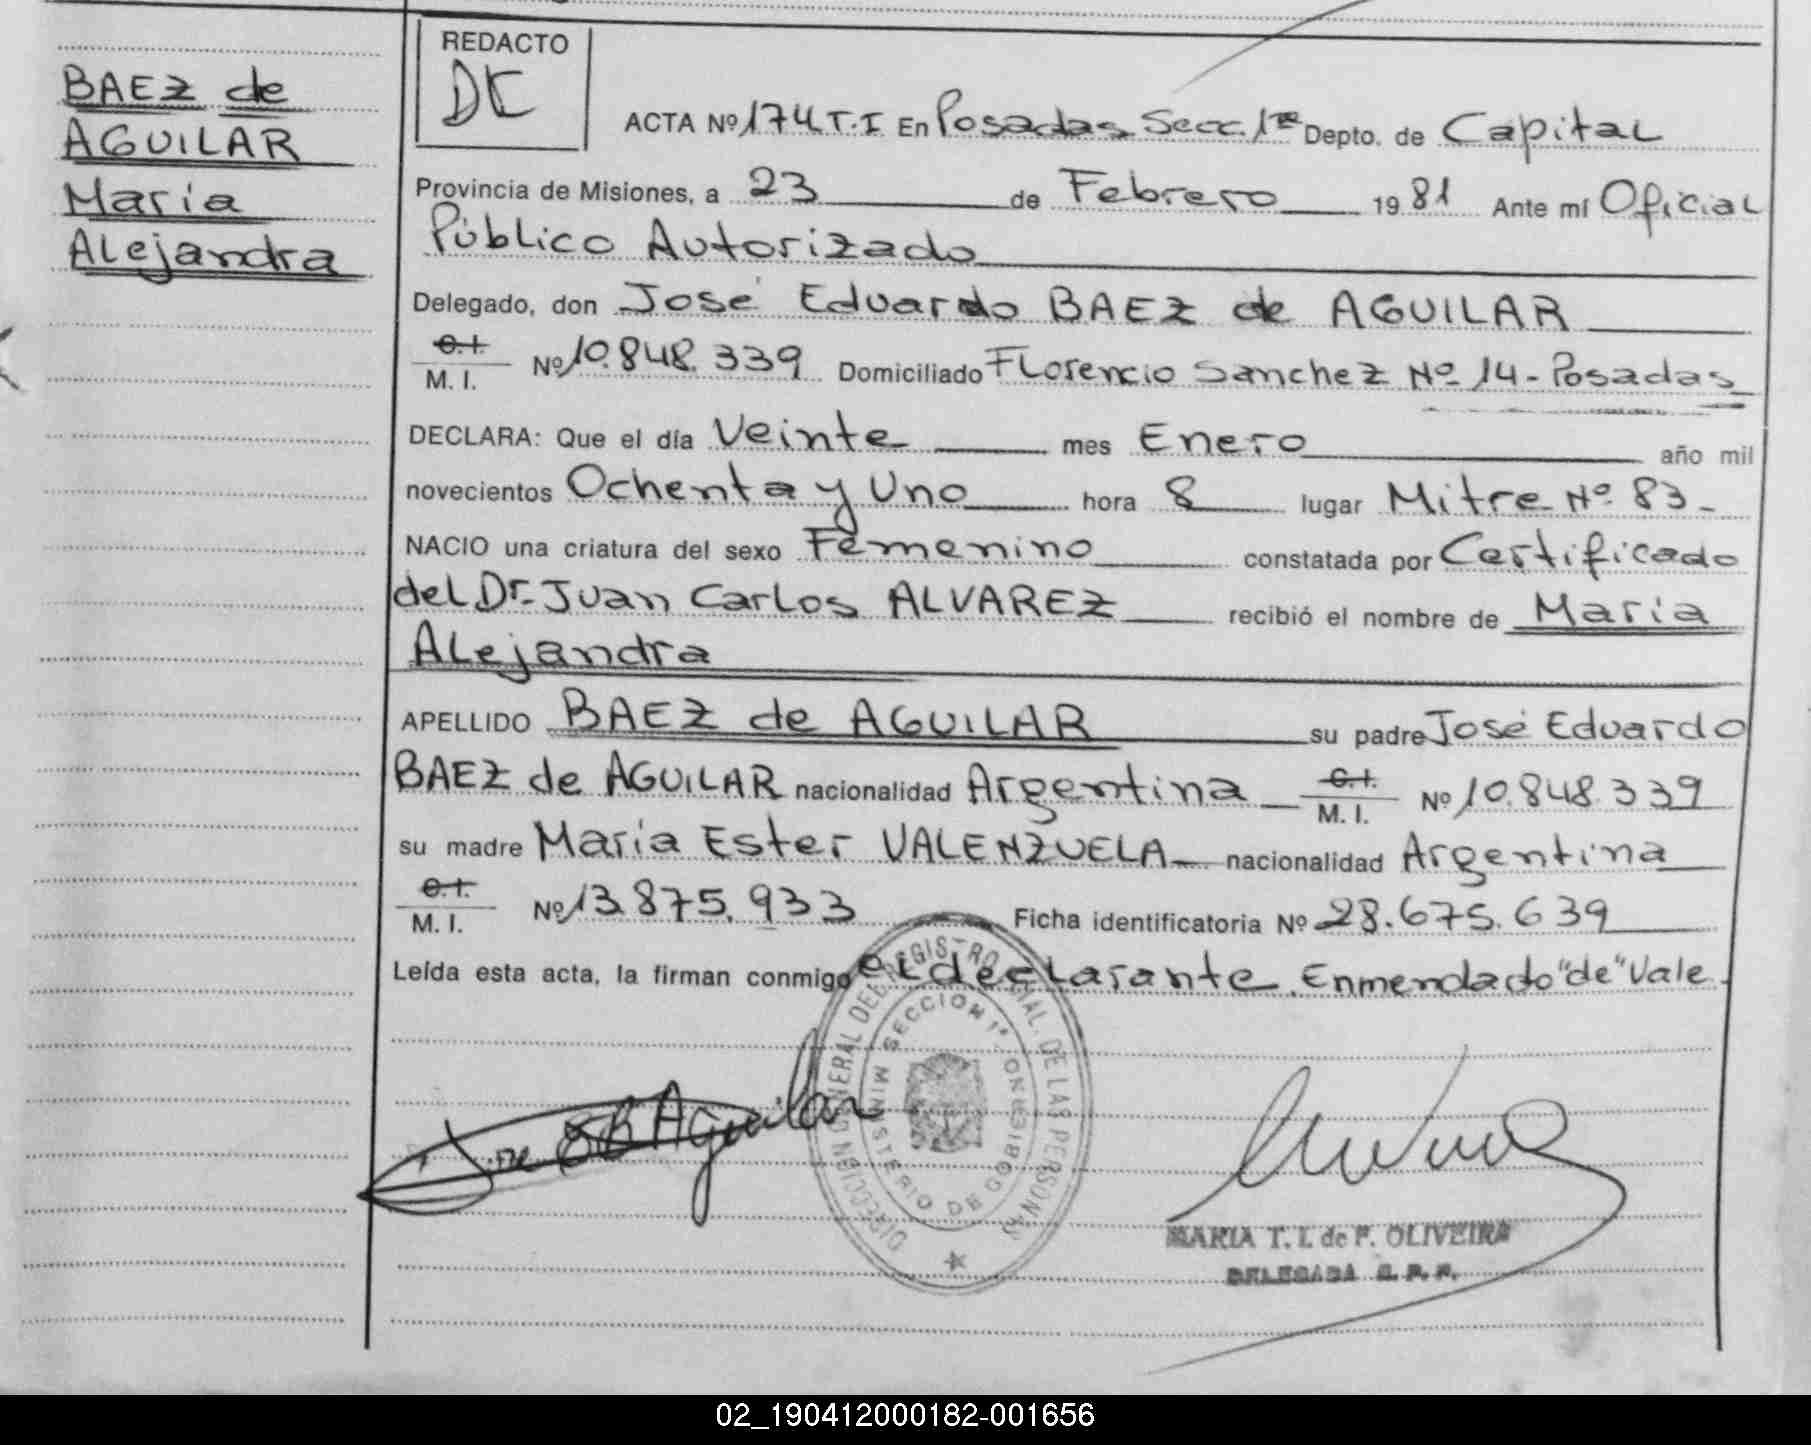 BAEZ de
AGUILAR
María
Alejandra
REDACTO
ACTA Nº 174 T.I En Posadas Secc. 1ra Depto. de Capital
Provincia de Misiones, a 23 de Febrero 1981 Ante mí Oficial
Público Autorizado
Delegado, don José Eduardo BAEZ de AGUILAR
C.I.
M. I. Nº 10.848.339 Domiciliado Florencio Sanchez Nº 14 - Posadas
DECLARA: Que el día Veinte mes Enero año mil
novecientos Ochenta y Uno hora 8 lugar Mitre Nº 83 -
NACIO una criatura del sexo Femenino constatada por Certificado
del Dr. Juan Carlos ALVAREZ recibió el nombre de María
Alejandra
APELLIDO BAEZ de AGUILAR su padre José Eduardo
BAEZ de AGUILAR nacionalidad Argentina C.I. M. I. Nº 10.848.339
su madre María Ester VALENZUELA nacionalidad Argentina
C.I.
M. I. Nº 13.875.933 Ficha identificatoria Nº 28.675.639
Leída esta acta, la firman conmigo el declarante. Enmendado "de" Vale.
DIRECCION GENERAL DEL REGISTRO DE LAS PERSONAS
SECCION 1ª
MINISTERIO DE GOBIERNO
MARIA T. I. de F. OLIVEIRA
DELEGADA
02_190412000182-001656